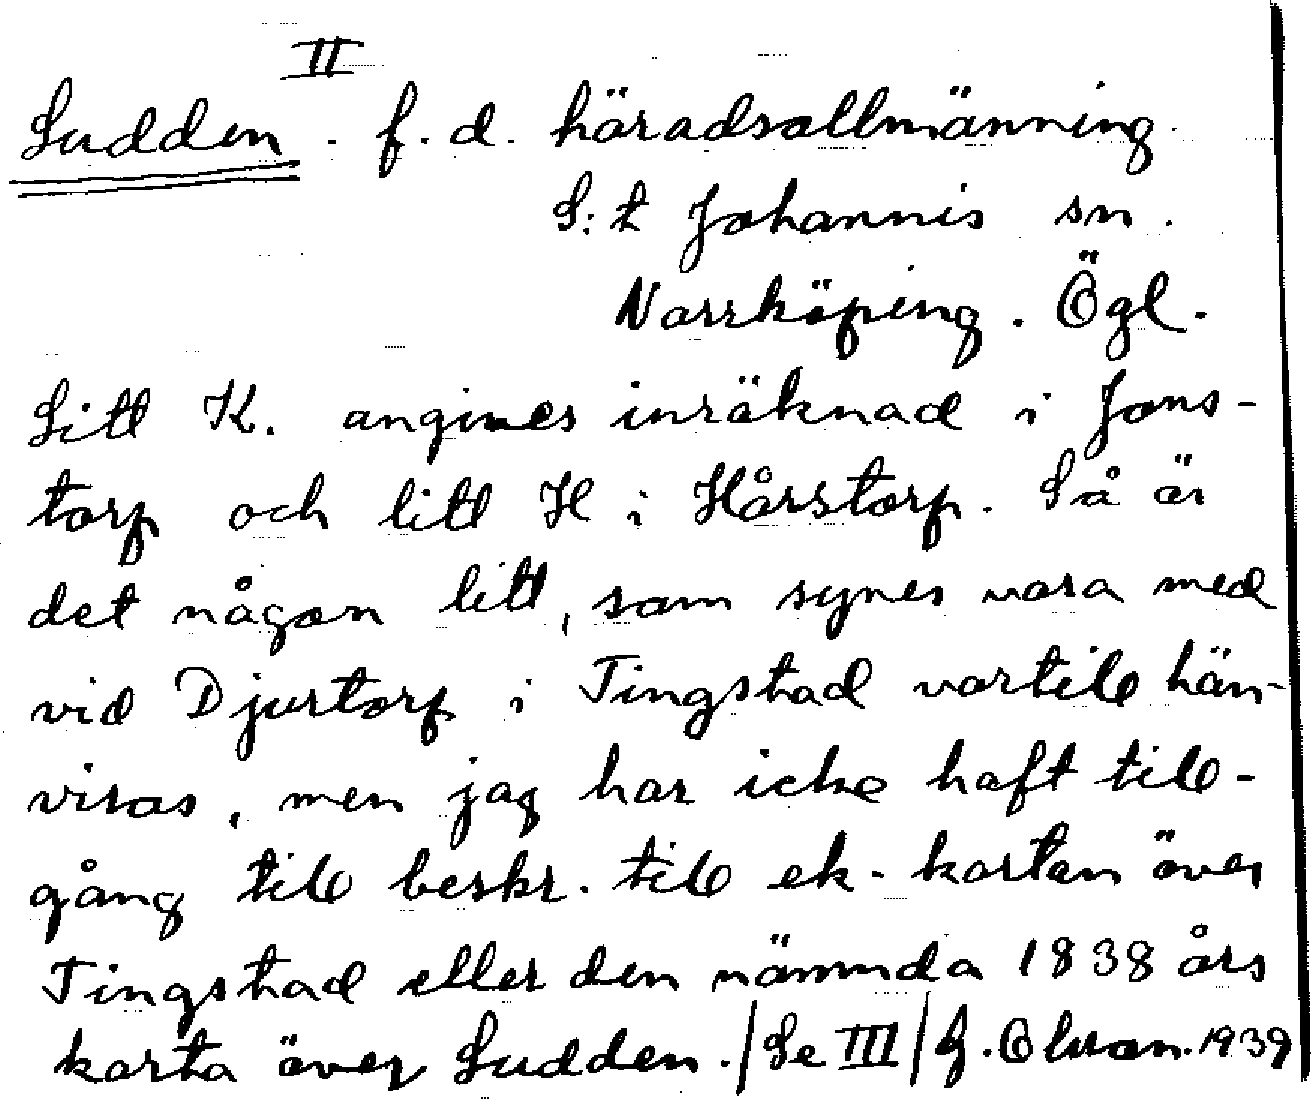 II
Sudden. f.d. häradsallmänning.
S:t Johannis sn.
Norrköping. Ögl.
Litt K. angives inräknad i Jons-
torp och litt H i Hårstorp. Så är
det någon litt, som synes vara med
vid Djurtorp i Tingstad vartill hän-
visas, men jag har icke haft till-
gång till beskr. till ek. kartan över
Tingstad eller den nämnda 1838 års
karta över Sudden. /Se III/ G. Olson. 1939